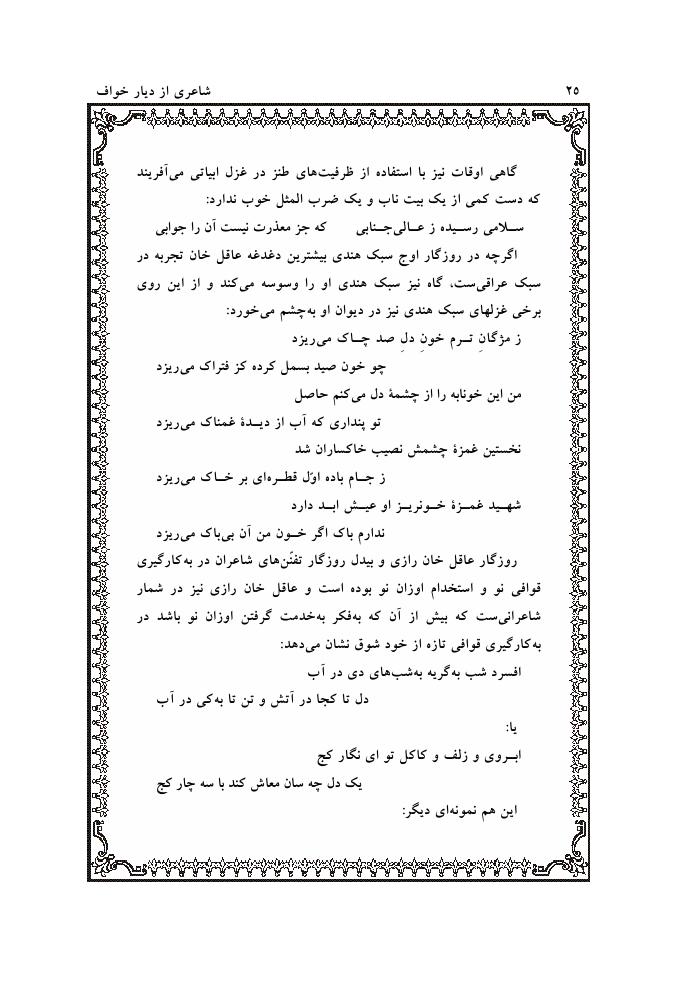 ۲۵ شاعری از دیار خواف
گاهی اوقات نیز با استفاده از ظرفیت‌های طنز در غزل ابیاتی می‌آفریند
که دست کمی از یک بیت ناب و یک ضرب المثل خوب ندارد:
سـلامی رسـیده ز عـالی‌جـنابی که جز معذرت نیست آن را جوابی
اگرچه در روزگار اوج سبک هندی بیشترین دغدغه عاقل خان تجربه در
سبک عراقی‌ست، گاه نیز سبک هندی او را وسوسه می‌کند و از این روی
برخی غزلهای سبک هندی نیز در دیوان او به‌چشم می‌خورد:
ز مژگانِ تـرم خونِ دلِ صد چـاک می‌ریزد
چو خون صید بسمل کرده کز فتراک می‌ریزد
من این خونابه را از چشمهٔ دل می‌کنم حاصل
تو پنداری که آب از دیـدهٔ غمناک می‌ریزد
نخستین غمزهٔ چشمش نصیب خاکساران شد
ز جـام باده اوّل قطـره‌ای بر خـاک می‌ریزد
شهـید غمـزهٔ خـونریـز او عیـش ابـد دارد
ندارم باک اگر خـون من آن بی‌باک می‌ریزد
روزگار عاقل خان رازی و بیدل روزگار تفنّن‌های شاعران در به‌کارگیری
قوافی نو و استخدام اوزان نو بوده است و عاقل خان رازی نیز در شمار
شاعرانی‌ست که بیش از آن که به‌فکر به‌خدمت گرفتن اوزان نو باشد در
به‌کارگیری قوافی تازه از خود شوق نشان می‌دهد:
افسرد شب به‌گریه به‌شب‌های دی در آب
دل تا کجا در آتش و تن تا به‌کی در آب
یا:
ابـروی و زلف و کاکل تو ای نگار کج
یک دل چه سان معاش کند با سه چار کج
این هم نمونه‌ای دیگر: